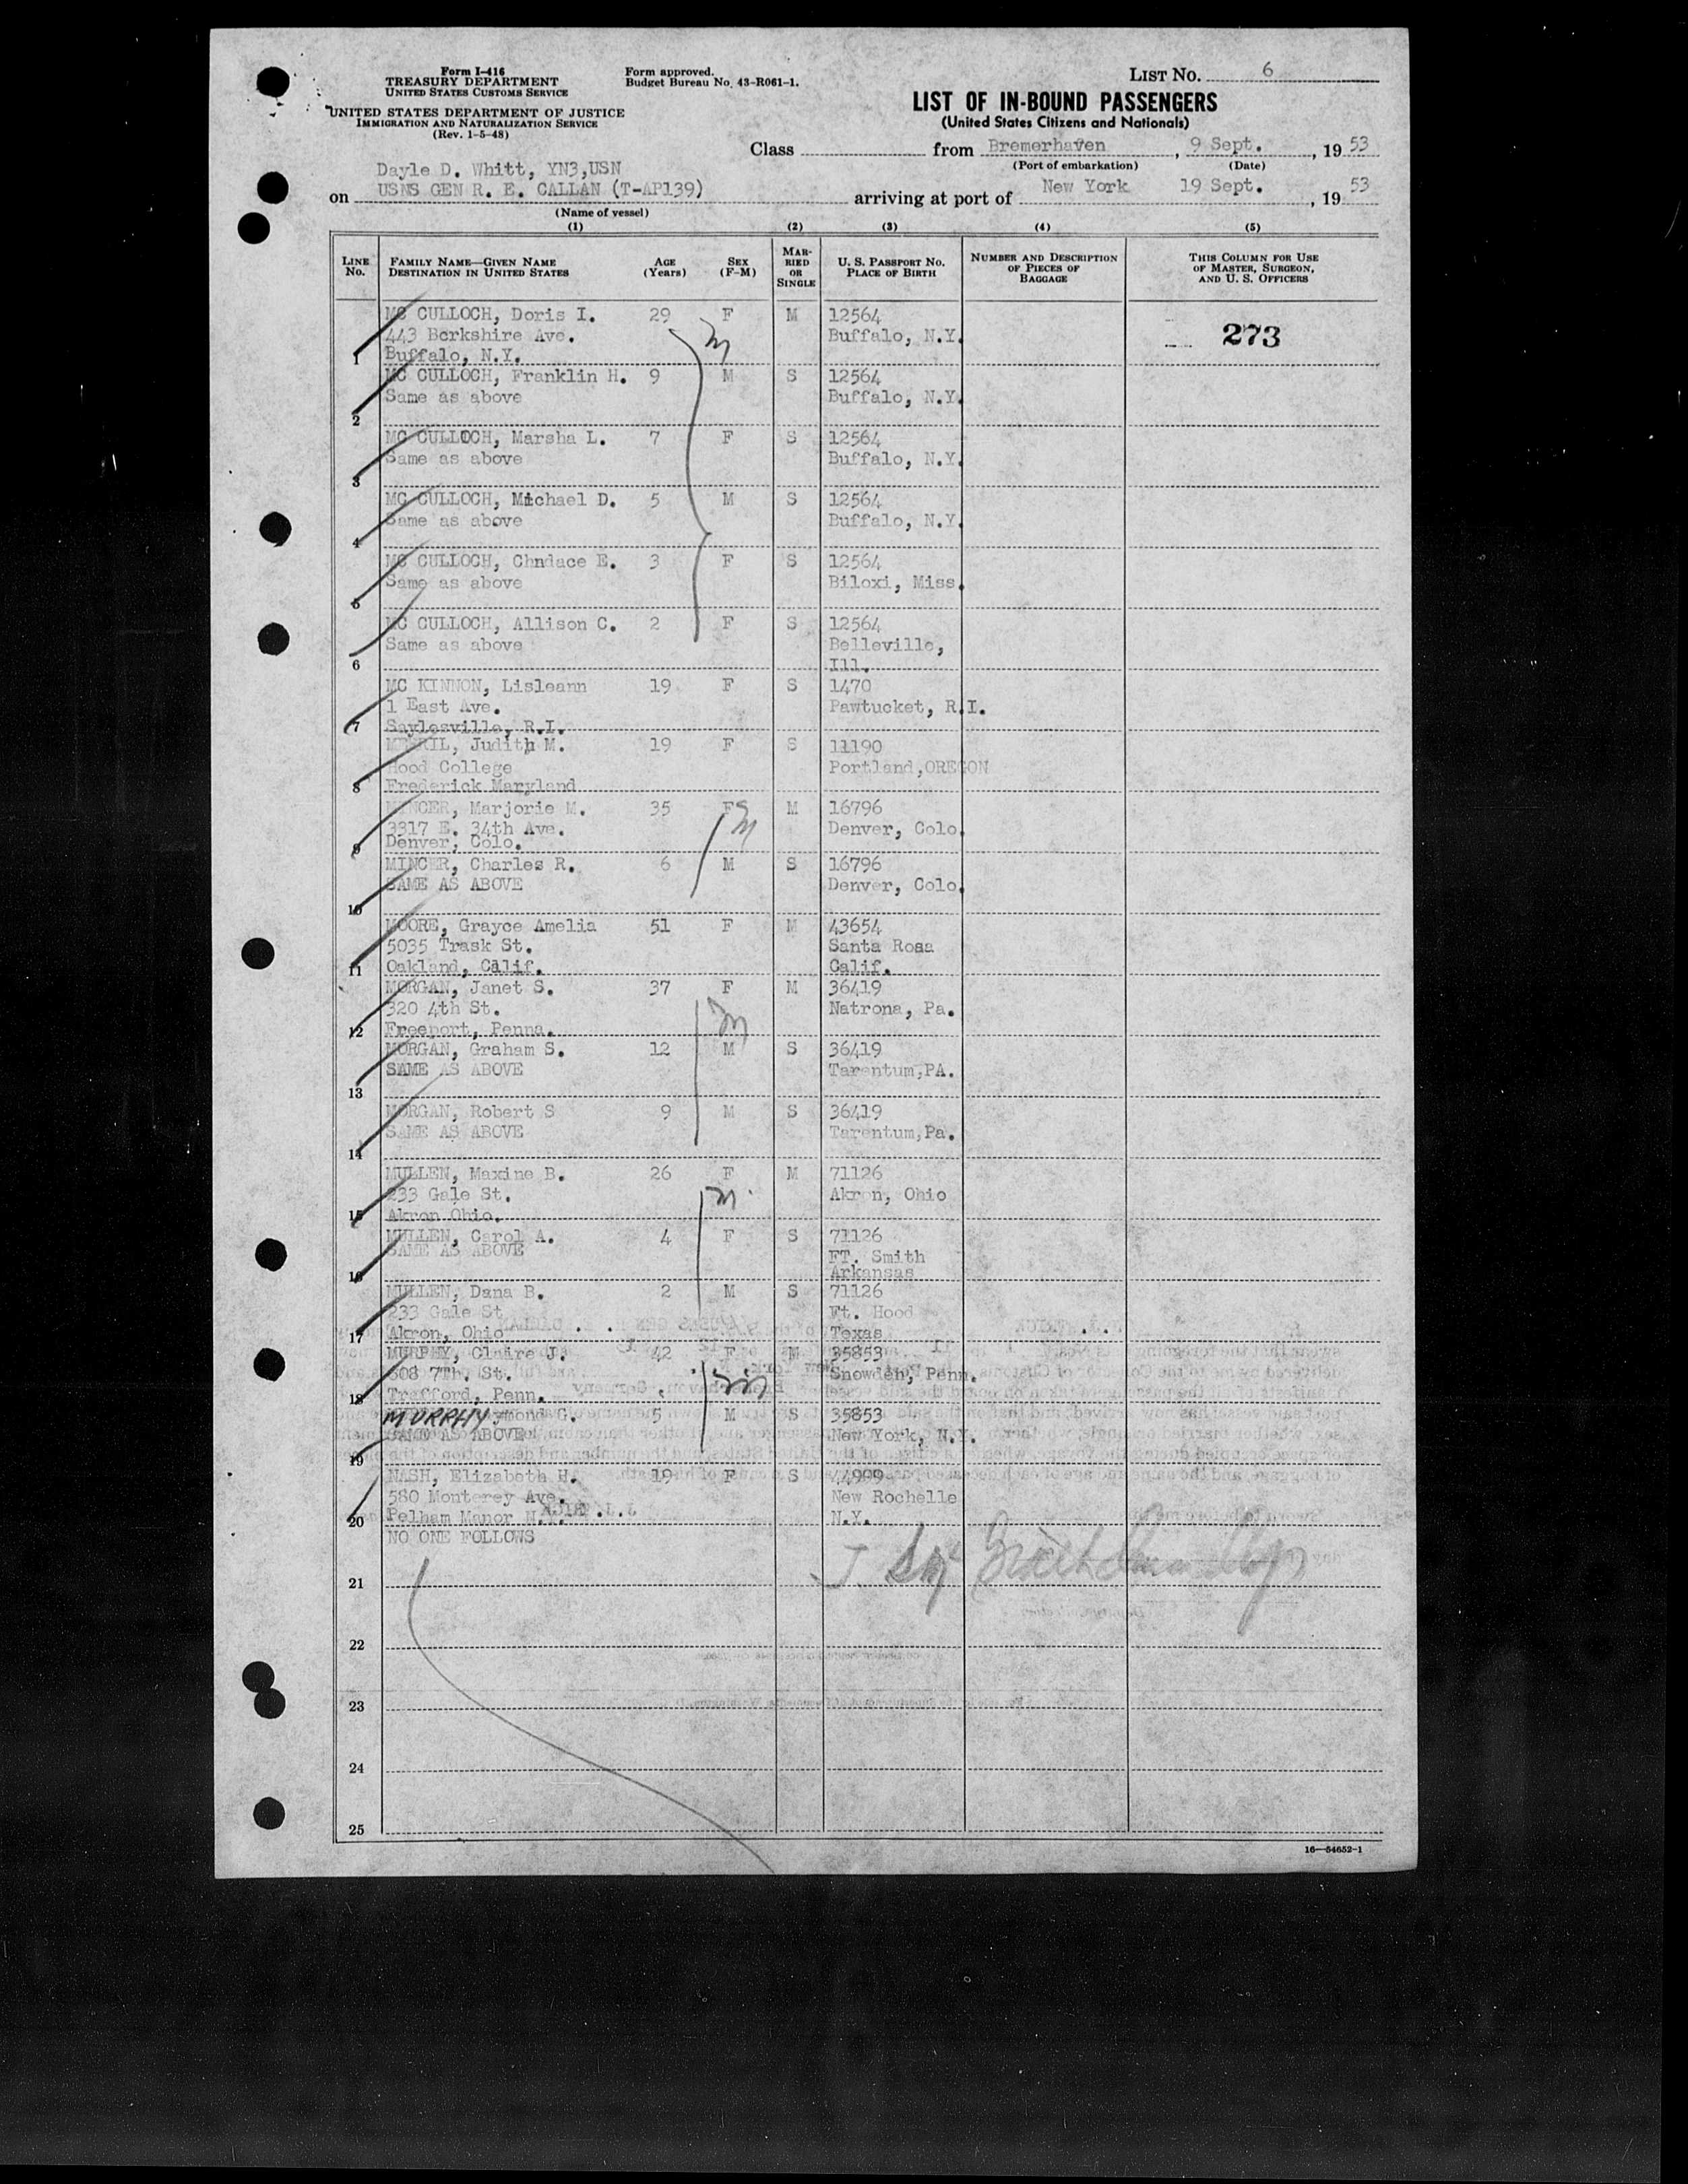 Form I-416
TREASURY DEPARTMENT
UNITED STATES CUSTOMS SERVICE
UNITED STATES DEPARTMENT OF JUSTICE
IMMIGRATION AND NATURALIZATION SERVICE
(Rev. 1-5-48)
Form approved.
Budget Bureau No. 43-R061-1.
LIST NO. 6
LIST OF IN-BOUND PASSENGERS
(United States Citizens and Nationals)
Class from Bremerhaven, 9 Sept., 19 53
(Port of embarkation) (Date)
Dayle D. Whitt, YN3,USN
on USNS GEN R. E. CALLAN (T-AP139) arriving at port of New York 19 Sept., 19 53
(Name of vessel)
(1) (2) (3) (4) (5)
LINE No. FAMILY NAME—GIVEN NAME DESTINATION IN UNITED STATES AGE (Years) SEX (F-M) MARRIED OR SINGLE U. S. PASSPORT NO. PLACE OF BIRTH NUMBER AND DESCRIPTION OF PIECES OF BAGGAGE THIS COLUMN FOR USE OF MASTER, SURGEON, AND U. S. OFFICERS
MC CULLOCH, Doris I. 29 F M 12564
443 Berkshire Ave. Buffalo, N.Y. 273
1 Buffalo, N.Y.
MC CULLOCH, Franklin H. 9 M S 12564
Same as above Buffalo, N.Y.
2
MC CULLOCH, Marsha L. 7 F S 12564
Same as above Buffalo, N.Y.
3
MC CULLOCH, Michael D. 5 M S 12564
Same as above Buffalo, N.Y.
4
MC CULLOCH, Chndace E. 3 F S 12564
Same as above Biloxi, Miss.
5
MC CULLOCH, Allison C. 2 F S 12564
Same as above Belleville,
6 Ill.
MC KINNON, Lisleann 19 F S 1470
1 East Ave. Pawtucket, R.I.
7 Saylesville, R.I.
Judith M. 19 F S 11190
Hood College Portland,OREGON
8 Frederick Maryland
MINCER, Marjorie M. 35 F M 16796
3317 E. 34th Ave. Denver, Colo.
9 Denver, Colo.
MINCER, Charles R. 6 M S 16796
SAME AS ABOVE Denver, Colo.
10
MOORE, Grayce Amelia 51 F M 43654
5035 Trask St. Santa Rosa
11 Oakland, Calif. Calif.
MORGAN, Janet S. 37 F M 36419
320 4th St. Natrona, Pa.
12 Freeport, Penna.
MORGAN, Graham S. 12 M S 36419
SAME AS ABOVE Tarentum,PA.
13
MORGAN, Robert S 9 M S 36419
SAME AS ABOVE Tarentum,Pa.
14
MULLEN, Maxine B. 26 F M 71126
233 Gale St. Akron, Ohio
15 Akron Ohio.
MULLEN, Carol A. 4 F S 71126
SAME AS ABOVE FT. Smith
16 Arkansas
MULLEN, Dana B. 2 M S 71126
233 Gale St Ft. Hood
17 Akron, Ohio Texas
MURPHY, Claire J. 42 F M 35853
508 7Th. St. Snowden, Penn.
18 Trafford, Penn.
MURPHY G. 5 M S 35853
SAME AS ABOVE New York, N.Y.
19
NASH, Elizabeth H. 19 F S 44999
580 Monterey Ave. New Rochelle
20 Pelham Manor N.Y. N.Y.
NO ONE FOLLOWS
21
22
23
24
25
16—54652-1